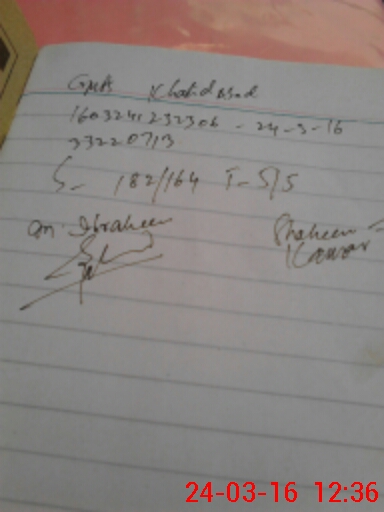 GMA Khalid Asad
1603241232306 - 24-3-16
33220713
S- 182/164 T-5/5
M. Ibraheem
Shaheen
Kawar
24-03-16 12:36